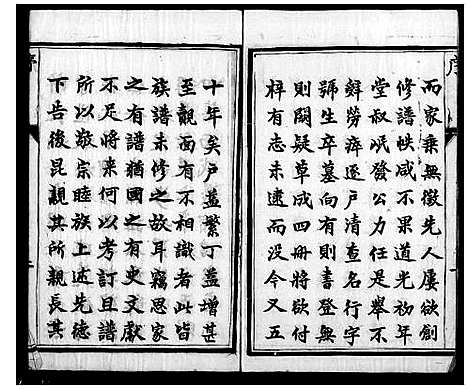 序
而家乗無徵先人屢欲創
修譜帙咸不果道光初年
堂叔岷發公力任是舉不
辭勞瘁逐戶清查名行字
號生卒墓向有則書登無
則闕疑草成四冊將欲付
梓有志未逮而没今又五
十年矣戶益繁丁益增甚
至覿面有不相識者此皆
族譜未修之故耳竊思家
之有譜猶國之有史文獻
不足將來何以考訂且譜
所以敬宗睦族上述先德
下告後昆親其所親長其